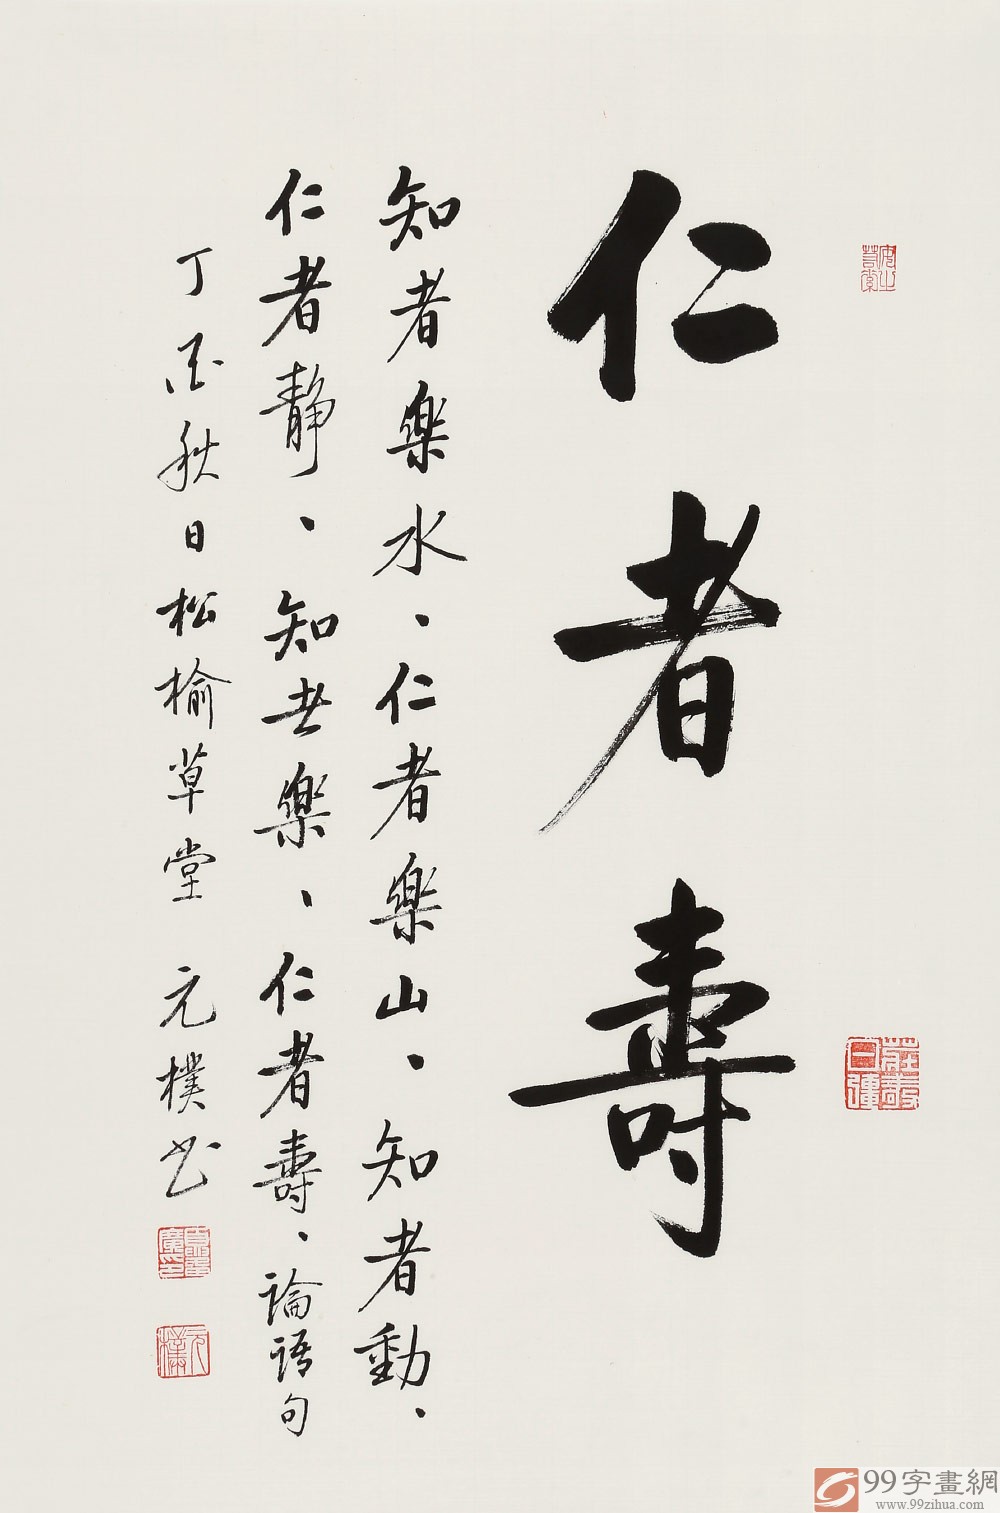 仁者壽
知者樂水、仁者樂山、知者動、
仁者靜、知者樂、仁者壽、論語句
丁酉秋日松榆草堂 元樸书
元樸
99字畫網
www.99zihua.com